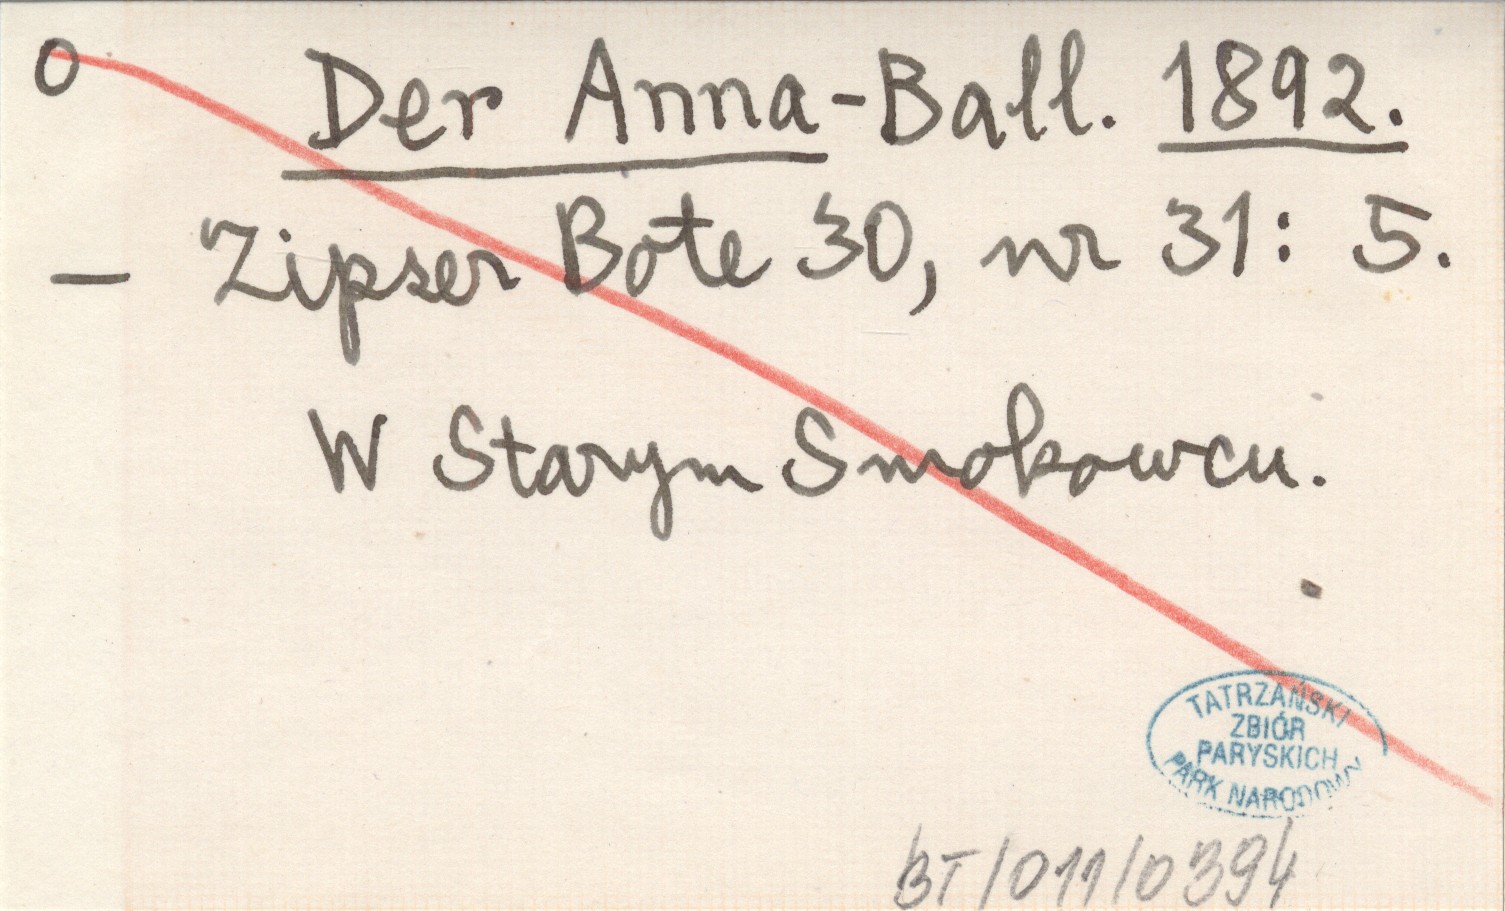 O Der Anna-Ball. 1892.
— Zipser Bote 30, nr 31: 5.
W Starym Smokowcu.
TATRZAŃSKI
ZBIÓR
PARYSKICH
PARK NARODOWY
BT/011/0394